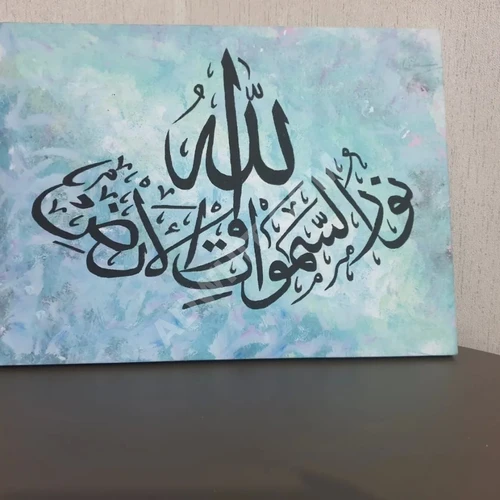 الله
نور السموات والأرض